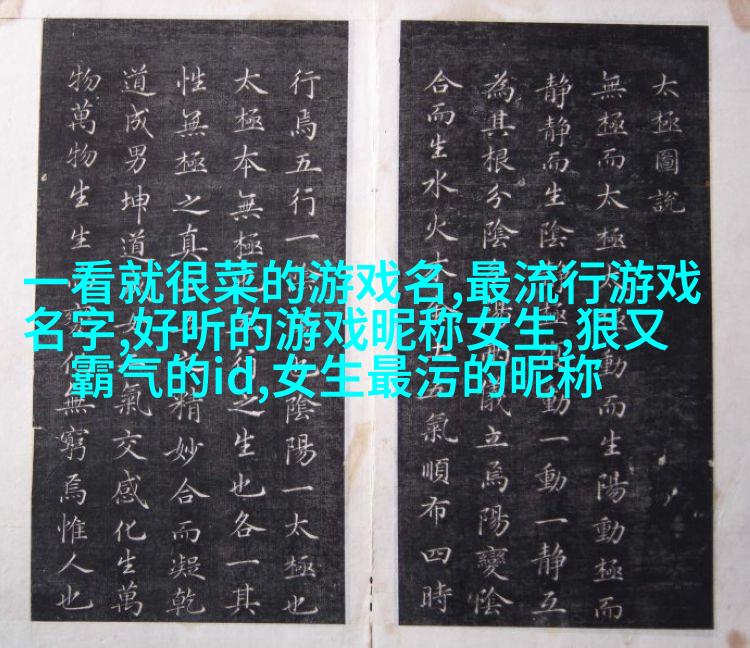 太極圖說
無極而太極太極動而生陽動極而
静静而生陰極動一動一静互
為其根分陰陽兩儀立焉陽變陰
合而生水火木土五氣順布四時
行焉五行一陰陽一太極也
太極本無極也五行之生也各一其
性無極之真二五精妙合而凝乾
道成男坤道女氣交感化生萬
物萬物生生變化無窮焉惟人也
一看就很菜的游戏名,最流行游戏
名字,好听的游戏昵称女生,狠又
霸气的id,女生最污的昵称